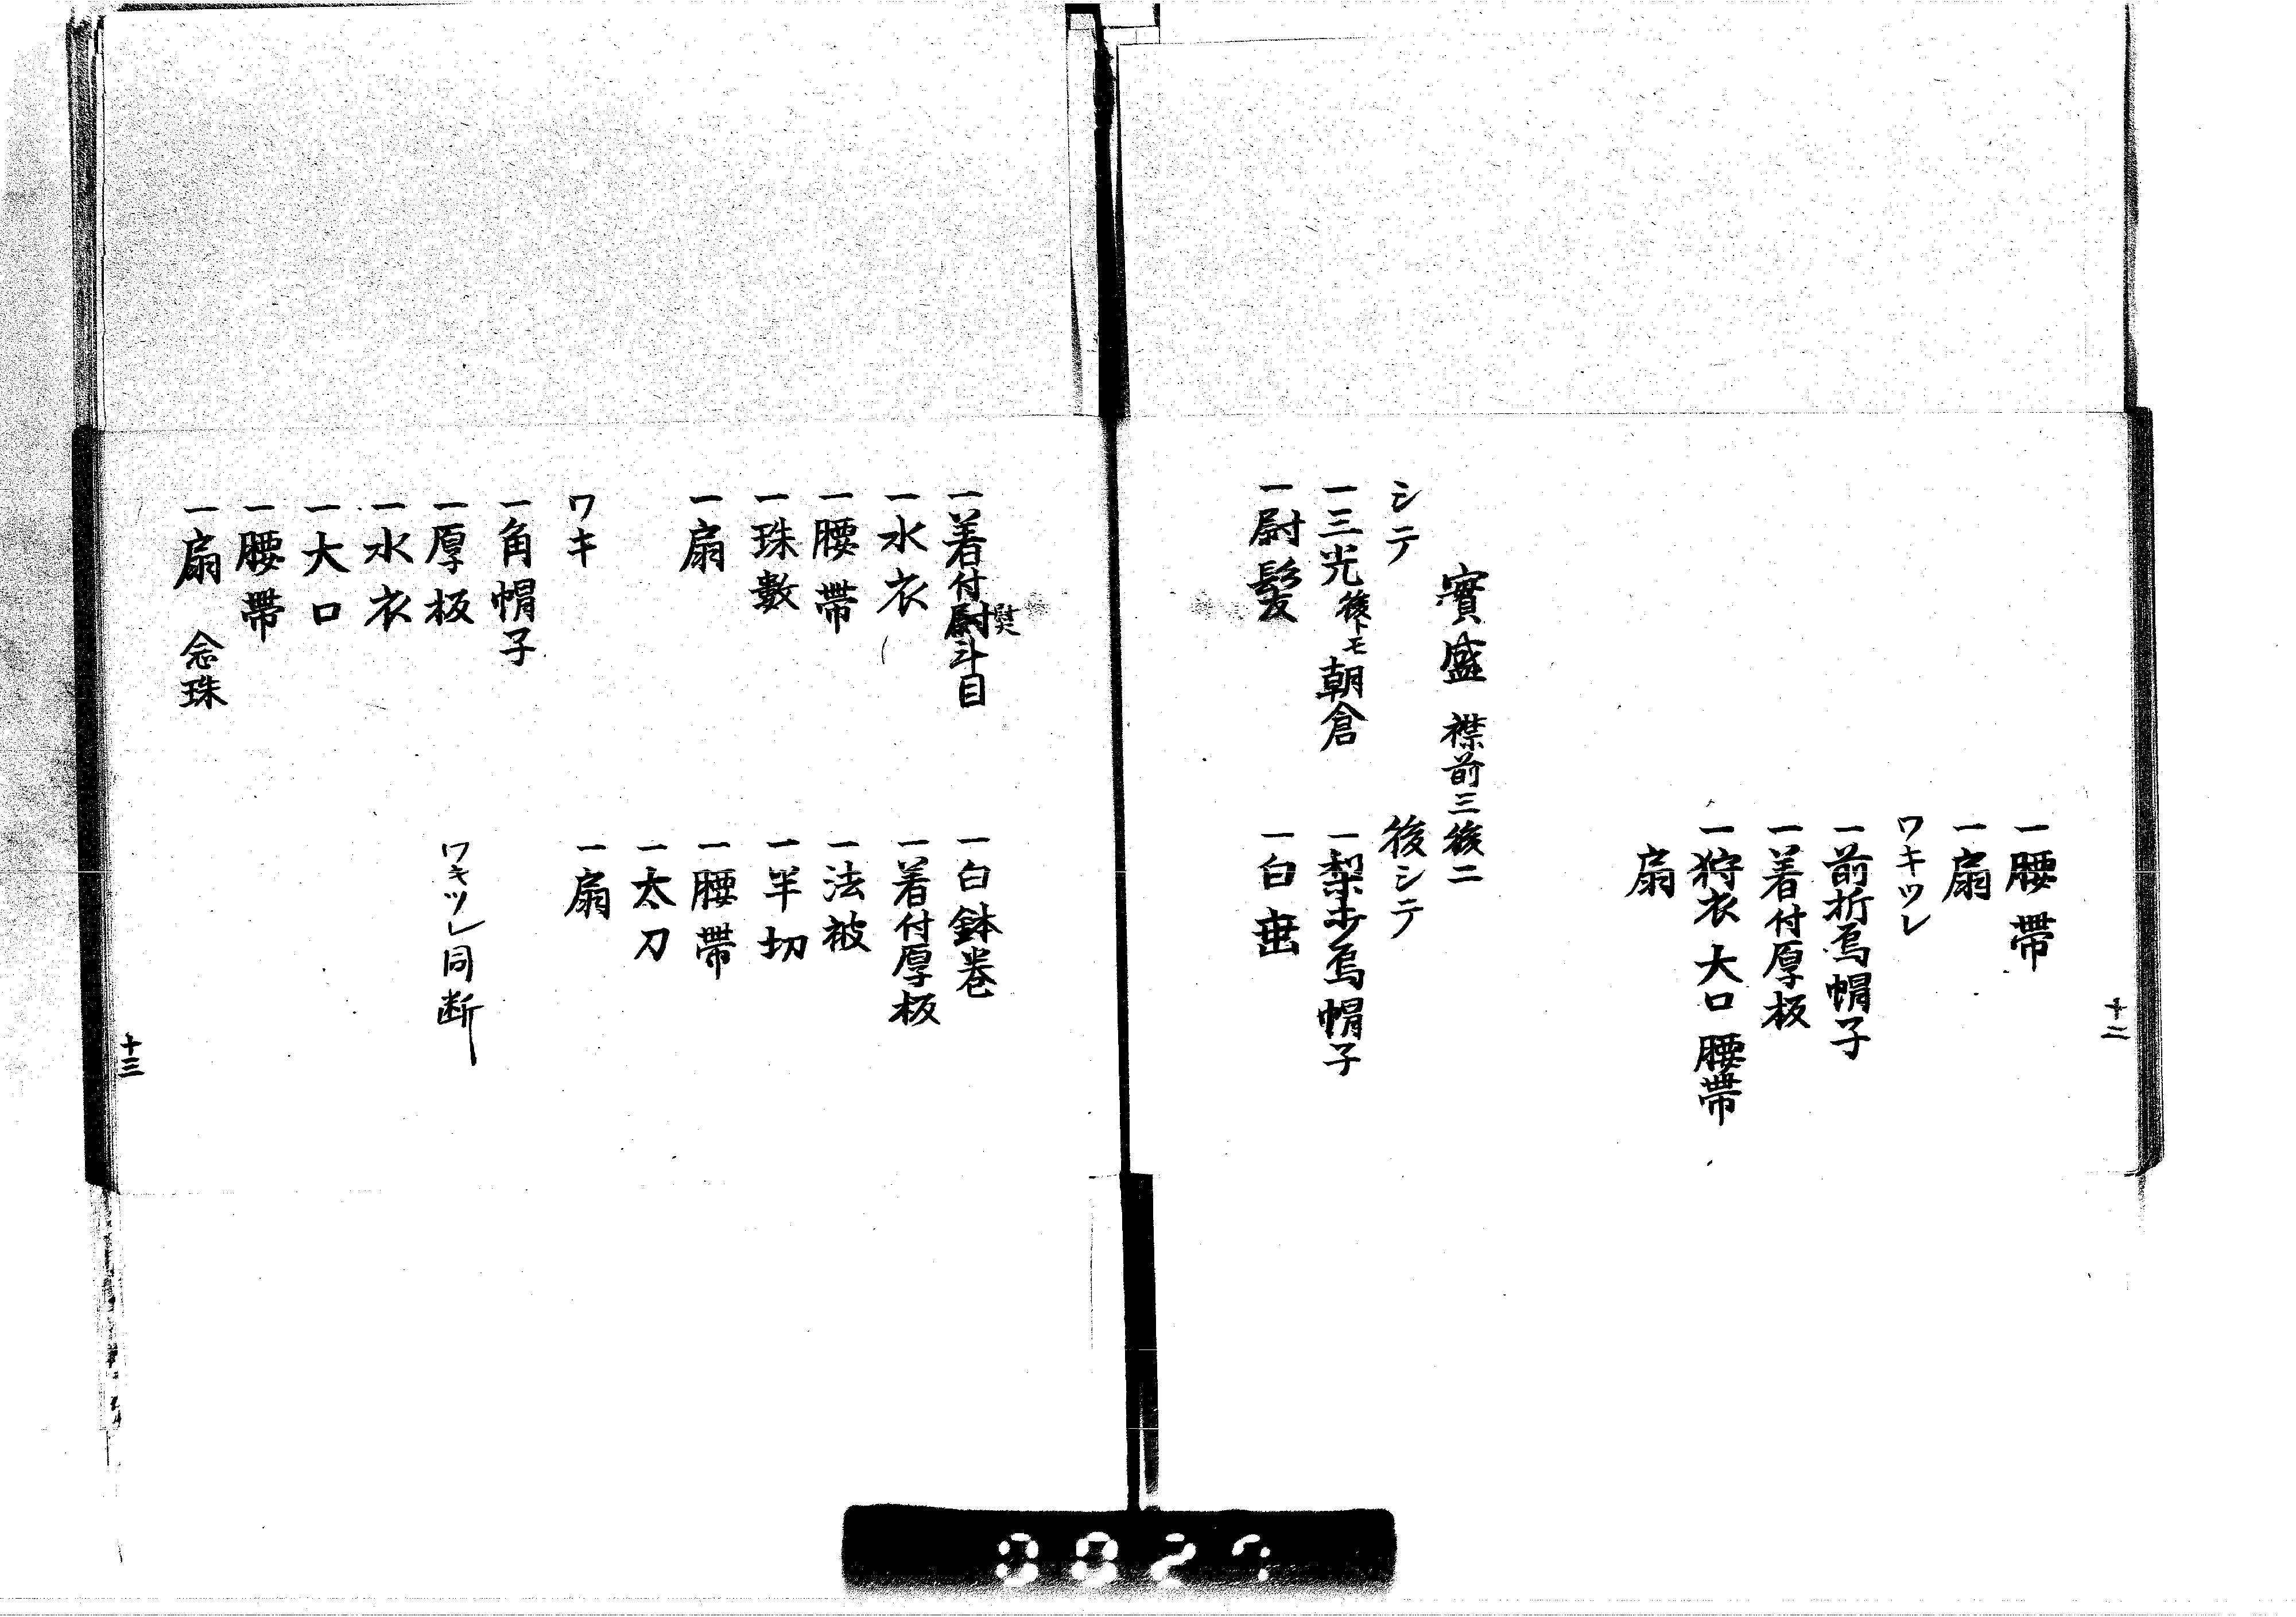 一腰帶
一扇
ワキツレ
一前折烏帽子
一着付厚板
一狩衣 大口 腰帶
扇
實盛 襟前三後二
シテ
一三光 後トモ 朝倉
一尉髪
後シテ
一梨子烏帽子
一白垂
十二
一着付尉斗目
熨
一水衣
一腰帶
一珠數
一扇
一白鉢巻
一着付厚板
一法被
一半切
一腰帶
一太刀
一扇
ワキ
一角帽子
一厚板
一水衣
一大口
一腰帶
一扇 念珠
ワキツレ同断
十三